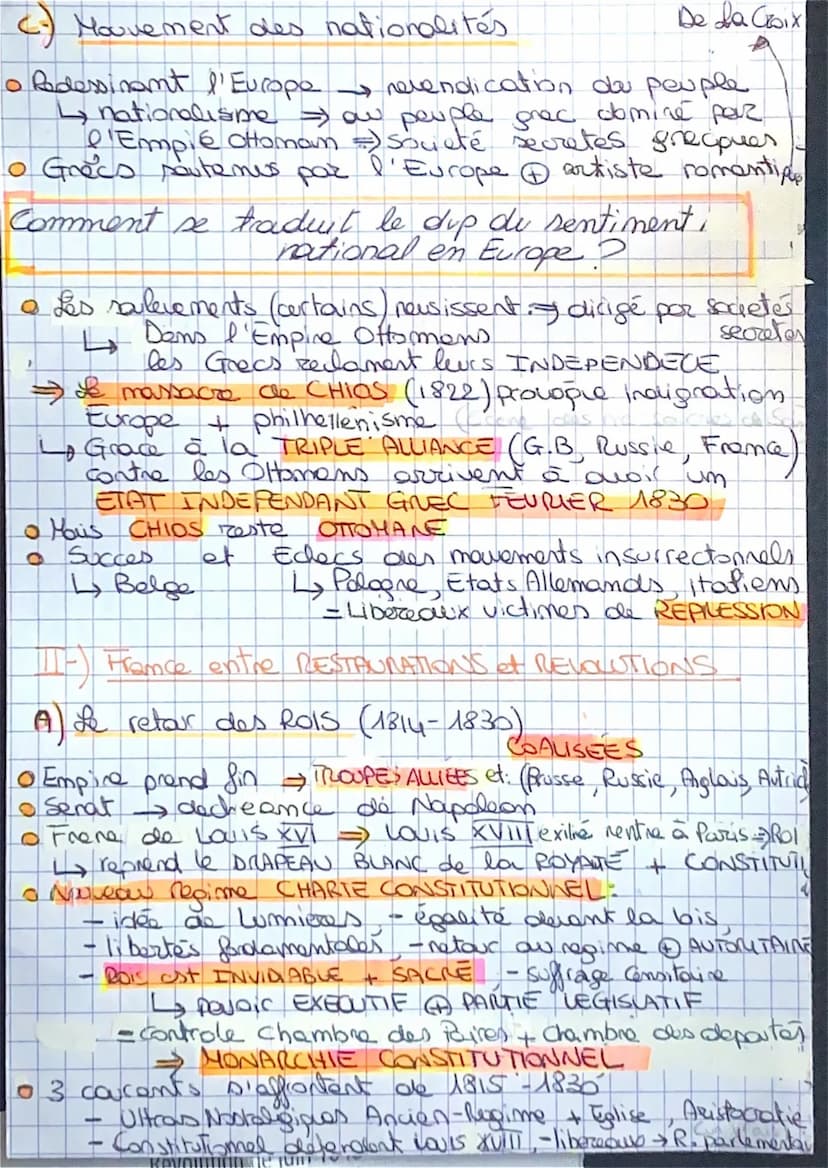 C-) Mouvement des nationalités
De La Croix
• Redessinant l'Europe → revendication du peuple
↳ nationalisme ⇒ au peuple grec dominé par
l'Empie Ottoman ⇒ société secretes grecques
• Grècs soutenus par l'Europe ⊕ artiste romantique
Comment se traduit le dvp du sentiment
national en Europe ?
• Les soulevements (certains) reusissent ⇒ dirigé par societés
secretes
↳ Dans l'Empire Ottomans
les Grecs reclament leurs INDEPENDECE
⇒ Le massacre de CHIOS (1822) provoque indignation
Europe + philhellénisme
↳ Grace à la TRIPLE ALLIANCE (G.B, Russie, France)
contre les Ottomans arrivent à avoir un
ETAT INDEPENDANT GREC FEVRIER 1830
• Mais CHIOS reste OTTOMANE
• Succes et Echecs des mouvements insurrectonnels
↳ Belge ↳ Pologne, Etats Allemands, italiens
= Libereaux victimes de REPRESSION
II-) France entre RESTAURATIONS et REVOLUTIONS
A) Le retour des ROIS (1814-1830)
COALISEES
• Empire prend fin ⇒ TROUPES ALLIEES et: (Prusse, Russie, Anglais, Autric
• Senat → decheance de Napoleon
• Frere de Louis XVI ⇒ Louis XVIII exilié rentre à Paris ⇒ ROI
↳ reprend le DRAPEAU BLANC de la ROYAUTÉ + CONSTITUTI
• Nouveau regime CHARTE CONSTITUTIONNEL :
- idée de Lumieres, - égalité devant la lois,
- libertés fondamentales, - retour au regime ⊕ AUTORITAIRE
- Rois est INVIOLABLE + SACRÉ, - Suffrage Censitaire
↳ pouvoir EXECUTIF ⊕ PARTIE LEGISLATIF
= controle Chambre des Paires + chambre des deputés
⇒ MONARCHIE CONSTITUTIONNEL
• 3 courants s'affrontent de 1815 - 1830
- Ultras Nostalgiques Ancien-Regime + Eglise, Aristocratie
- Constitutionnel defendent Louis XVIII, - libereaux → R. parlementai